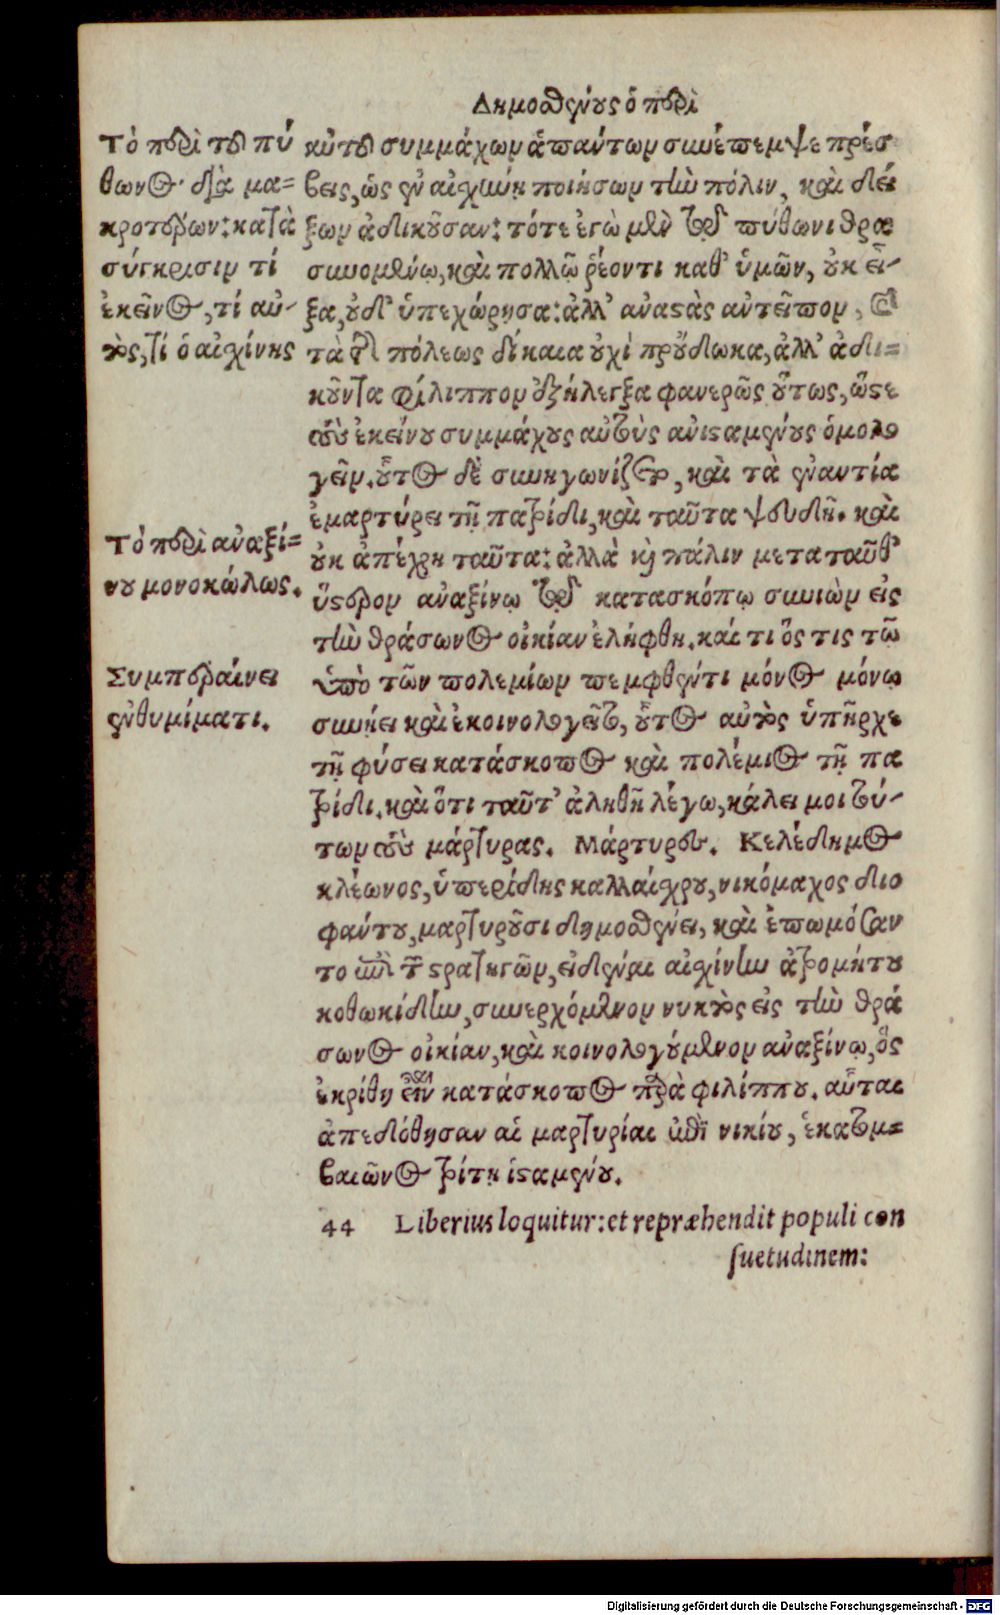 Δημοσθένους ὁ περὶ
Τὸ περὶ τοῦ πύ
θωνος διὰ μα=
κροτέρων: κατὰ
σύγκρισιν τί
ἐκεῖνος, τί αὐ-
τὸς, τί ὁ αἰχίνης
Τὸ περὶ ἀναξί=
νου μονοκώλως.
Συμπεραίνει
ἐνθυμίματι.
κὐτοῦ συμμάχων ἁπάντων συνέπεμψε πρέσ
βεις, ὡς ἐν αἰχύνῃ ποιήσων τὴν πόλιν, καὶ δεί
ξων ἀδικοῦσαν: τότε ἐγὼ μὲν τῷ πύθωνι θρα
συνομένῳ, καὶ πολλῷ ῥέοντι καθ' ὑμῶν, οὐκ εἶ-
ξα, οὐδ' ὑπεχώρησα: ἀλλ' ἀναστὰς ἀντεῖπον,
τὰ τῆς πόλεως δίκαια οὐχὶ προὔδωκα, ἀλλ' ἀδι=
κοῦντα φίλιππον ἐξήλεγξα φανερῶς οὕτως, ὥστε
τοὺς ἐκείνου συμμάχους αὐτοὺς ἀνισταμένους ὁμολο
γεῖν. οὗτος δὲ συνηγωνίζετο, καὶ τὰ ἐναντία
ἐμαρτύρει τῇ πατρίδι, καὶ ταῦτα ψευδῆ. καὶ
οὐκ ἀπέχρη ταῦτα: ἀλλὰ καὶ πάλιν μετα ταῦθ'
ὕστερον ἀναξίνῳ τῷ κατασκόπῳ συνιὼν εἰς
τὴν θράσωνος οἰκίαν ἐλήφθη. καί τι ὅς τις τῷ
ὑπὸ τῶν πολεμίων πεμφθέντι μόνος μόνῳ
συνῄει καὶ ἐκοινολογεῖτο, οὗτος αὐτὸς ὑπῆρχε
τῇ φύσει κατάσκοπος καὶ πολέμιος τῇ πα
τρίδι. καὶ ὅτι ταῦτ' ἀληθῆ λέγω, κάλει μοι τού-
των τοὺς μάρτυρας. Μάρτυρες. Κελέδημος
κλέωνος, ὑπερίδης καλλαίχρου, νικόμαχος διο
φάντου, μαρτυροῦσι δημοσθένει, καὶ ἐπωμόσαν
το ἐπὶ τῶν στρατηγῶν, εἰδέναι αἰχίνην ἀτρομήτου
κοθωκίδην, συνερχόμενον νυκτὸς εἰς τὴν θρά
σωνος οἰκίαν, καὶ κοινολογούμενον ἀναξίνῳ, ὃς
ἐκρίθη εἶναι κατάσκοπος παρὰ φιλίππου. αὗται
ἀπεδόθησαν αἱ μαρτυρίαι ἐπὶ νικίου, ἑκατομ=
βαιῶνος τρίτῃ ἱσταμένου.
44 Liberius loquitur: et repræhendit populi con
suetudinem:
Digitalisierung gefördert durch die Deutsche Forschungsgemeinschaft - DFG